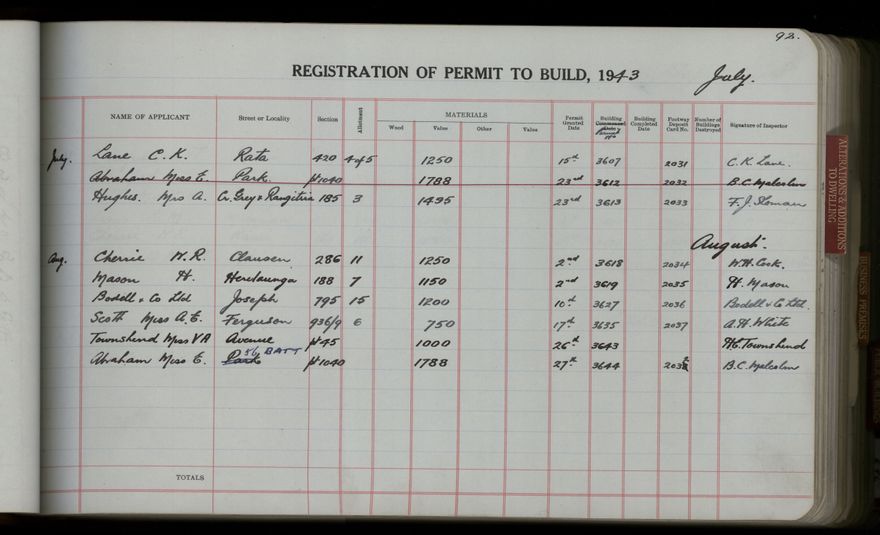 92.
REGISTRATION OF PERMIT TO BUILD, 1943 July.
NAME OF APPLICANT Street or Locality Section Allotment MATERIALS Wood Value Other Value Permit Granted Date Building Permit No Building Completed Date Footway Deposit Card No. Number of Buildings Destroyed Signature of Inspector
July. Lane C. K. Rata 420 4 of 5 1250 15th 3607 2031 C. K. Lane.
Abraham Miss E. Park. pt 1040 1788 23rd 3612 2032 B.C. Malcolm
Hughes. Mrs A. Cr. Grey & Rangitikei 185 3 1495 23rd 3613 2033 F. J. Sloman
August.
Aug. Cherrie W. R. Clausen 286 11 1250 2nd 3618 2034 W. H. Cook.
Mason H. Heretaunga 188 7 1150 2nd 3619 2035 H. Mason
Bodell & Co Ltd Joseph 795 15 1200 10th 3627 2036 Bodell & Co Ltd.
Scott Miss A. E. Ferguson 936/9 6 750 17th 3635 2037 A. H. White
Townshend Miss V A Avenue pt 45 1000 26th 3643 Townshend
Abraham Miss E. Park BATT pt 1040 1788 27th 3644 B. C. Malcolm
TOTALS
ALTERATIONS & ADDITIONS TO DWELLING
BUSINESS PREMISES